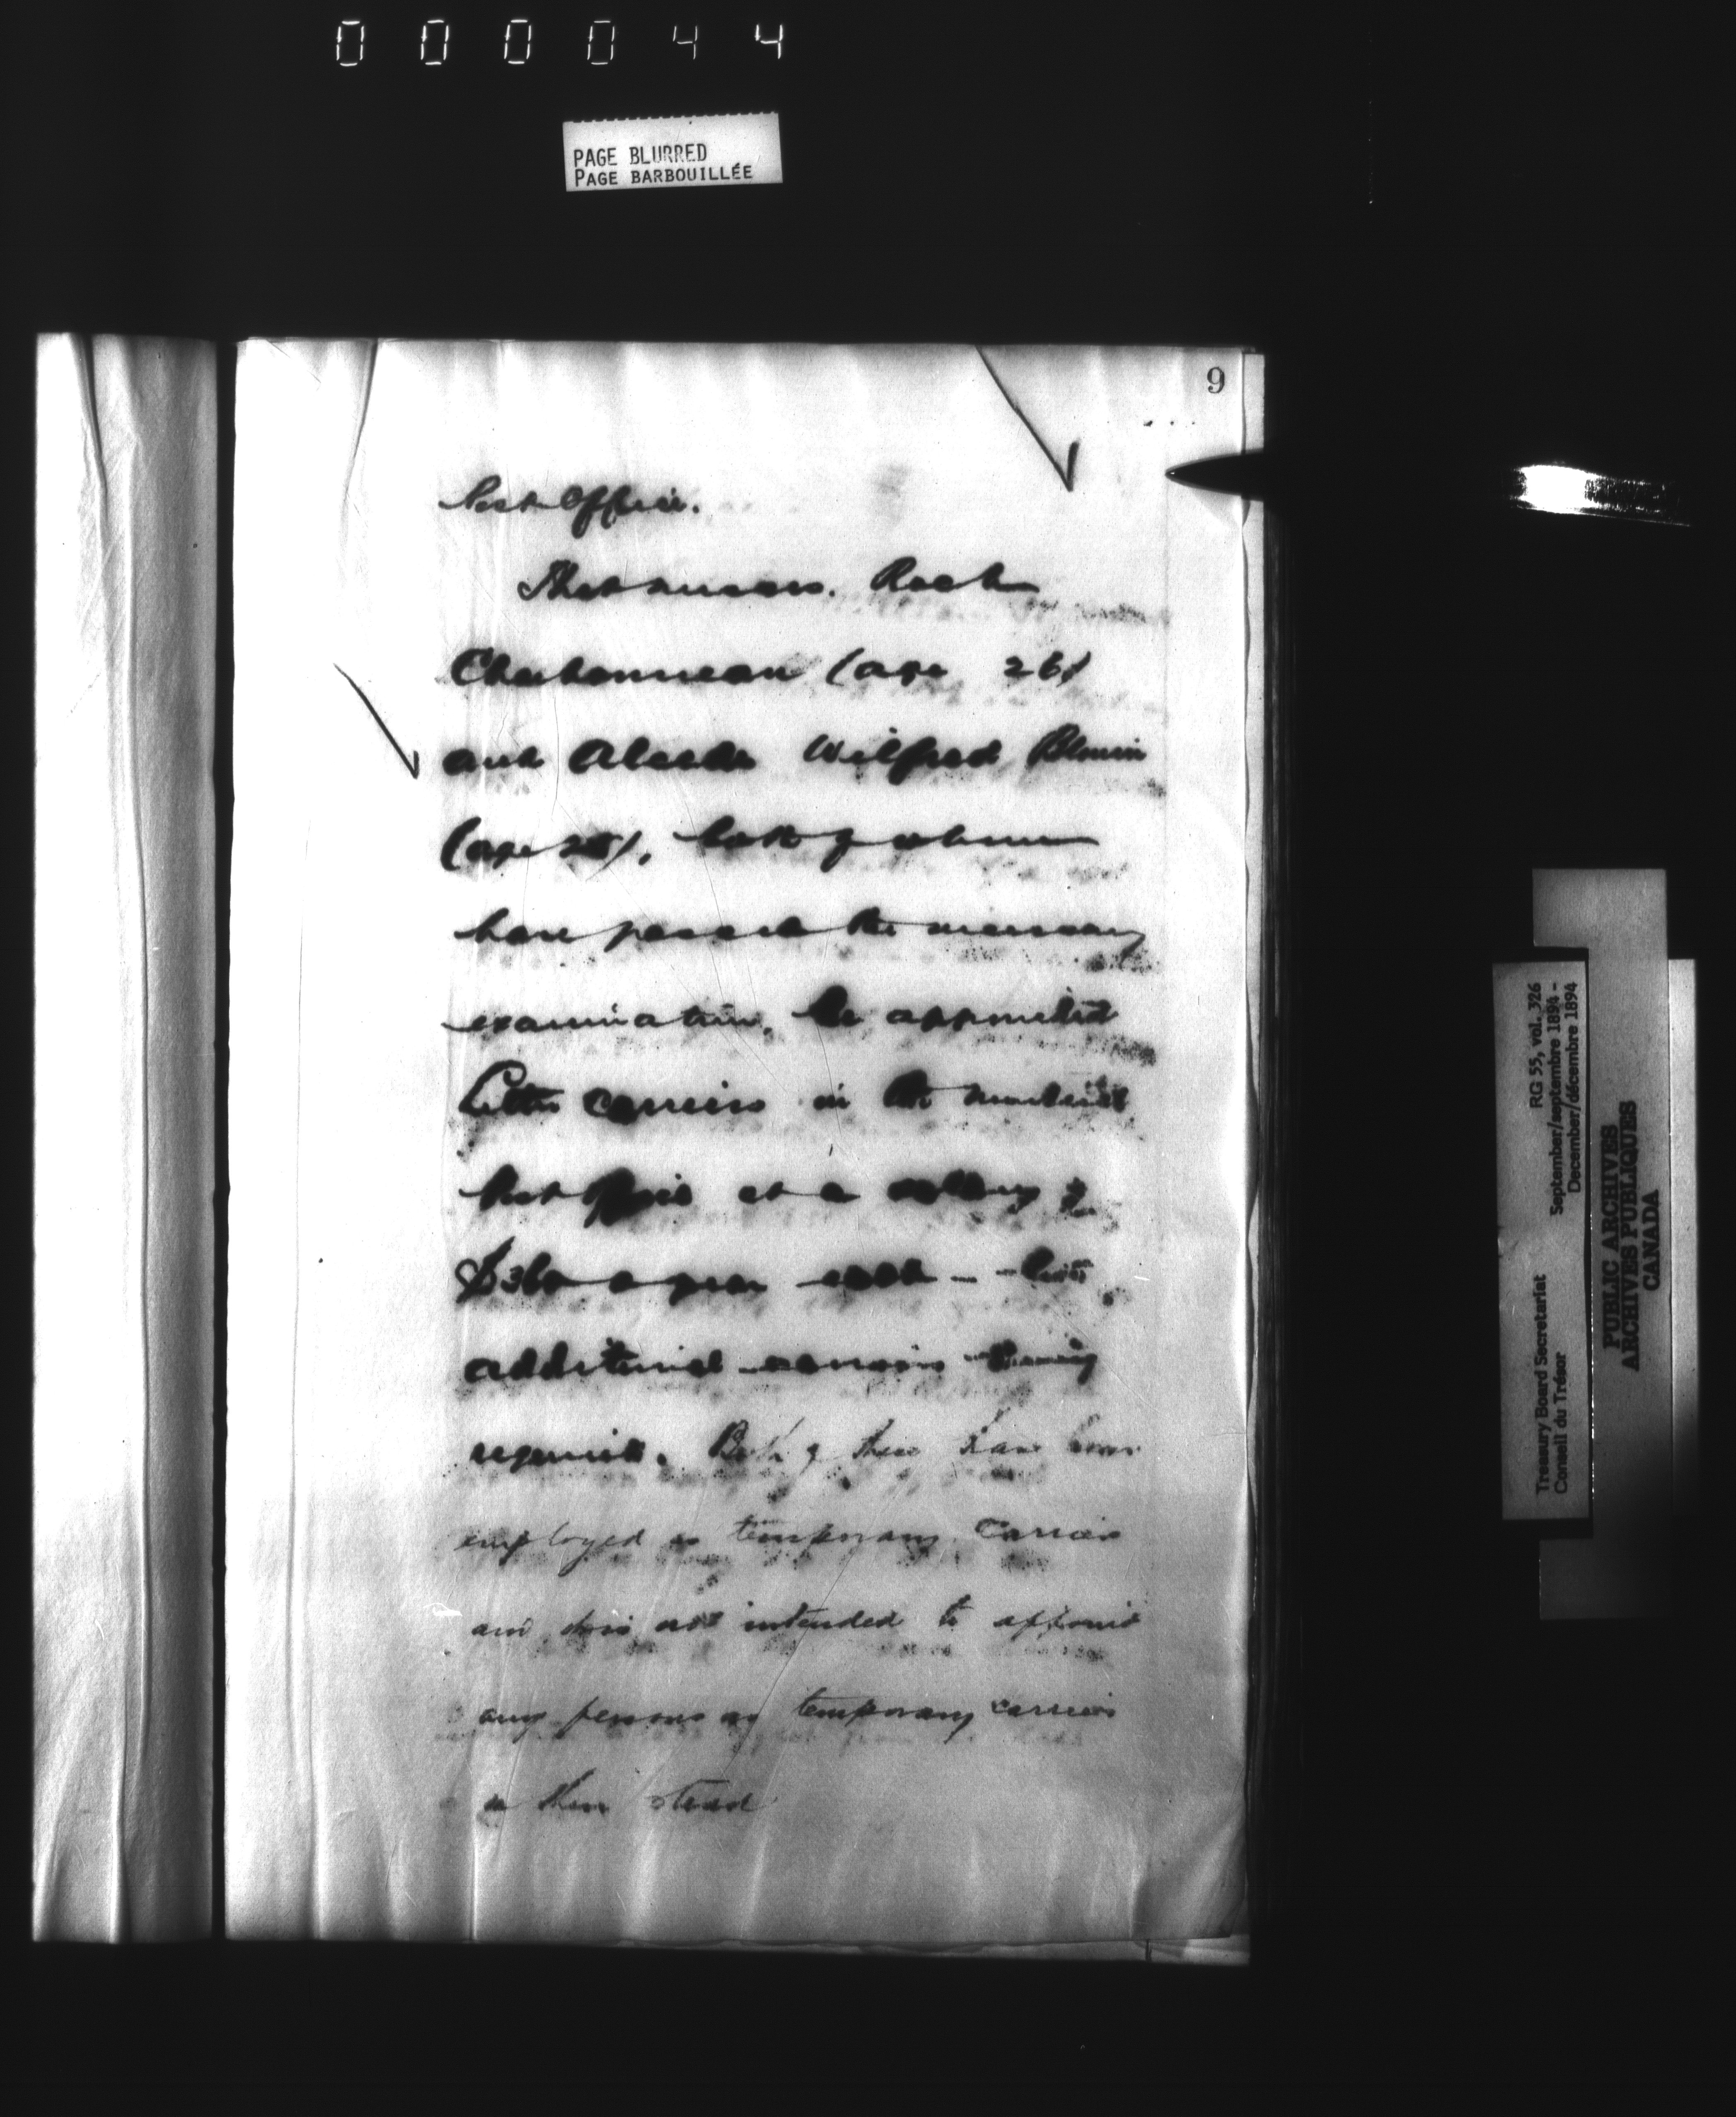 000044
PAGE BLURRED
PAGE BARBOUILLÉE
9
Post Office.
That Messrs. Roch
Charbonneau (age 26)
and Wilfred Blouin
(age 28), both of whom
have passed the necessary
examination, be appointed
Letter carriers in the Montreal
Post Office at a salary of
$360 a year each -- 
additional carriers being
required. Both of these have been
employed as temporary Carriers
and it is not intended to appoint
any persons as temporary carriers
in their stead
Treasury Board Secretariat RG 55, vol. 326
Conseil du Trésor September/septembre 1894 -
December/décembre 1894
PUBLIC ARCHIVES
ARCHIVES PUBLIQUES
CANADA